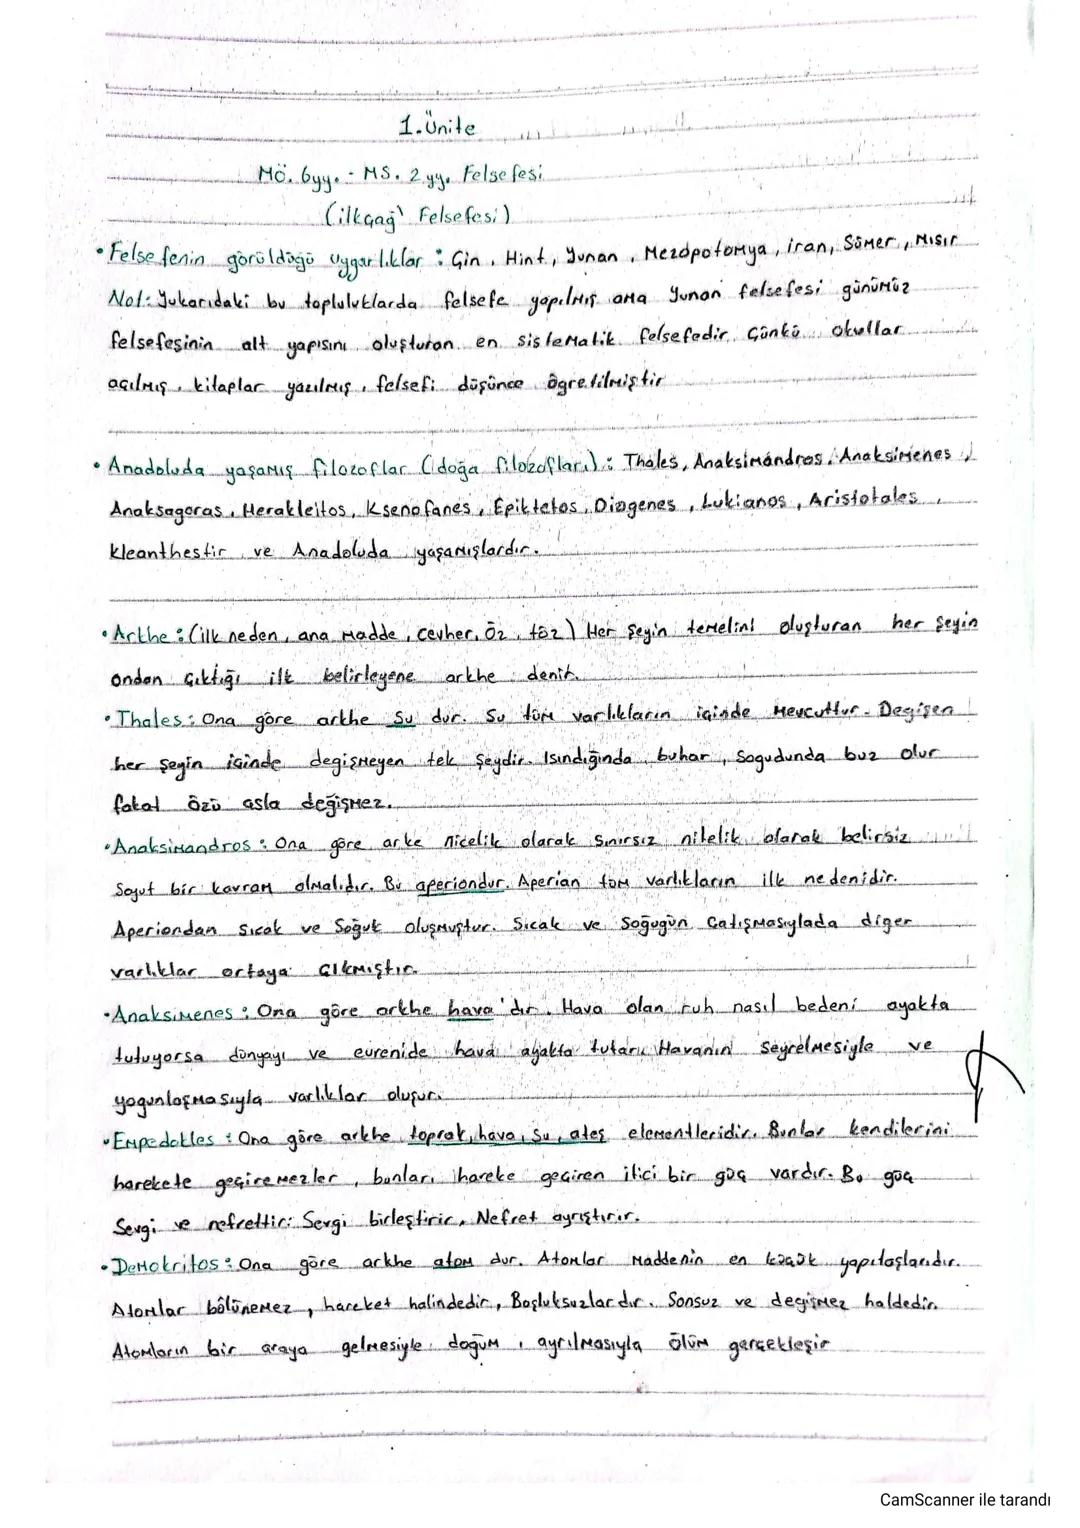 1.Ünite
MÖ. 6yy. - MS. 2.yy. Felsefesi
(ilkçağ Felsefesi)
• Felsefenin görüldüğü uygarlıklar : Çin, Hint, Yunan, Mezopotomya, iran, Sümer, Mısır
Not: Yukarıdaki bu topluluklarda felsefe yapılmış ama Yunan felsefesi günümüz
felsefesinin alt yapısını oluşturan en sistematik felsefedir. Çünkü okullar
açılmış, kitaplar yazılmış, felsefi düşünce öğretilmiştir
• Anadoluda yaşamış filozoflar (doğa filozofları) : Thales, Anaksimandros, Anaksimenes,
Anaksagoras, Herakleitos, Ksenofanes, Epiktetos, Diogenes, Lukianos, Aristotales,
Kleanthestir ve Anadoluda yaşamışlardır.
• Arkhe : (ilk neden, ana madde, cevher, Öz, töz) Her şeyin temelini oluşturan her şeyin
ondan çıktığı ilk belirleyene arkhe denir.
• Thales : Ona göre arkhe Su dur. Su tüm varlıkların içinde mevcuttur. Degişen
her şeyin içinde degişmeyen tek şeydir. Isındığında buhar, Sogudunda buz olur
fakat özü asla değişmez.
• Anaksimandros : Ona göre arke nicelik olarak sınırsız nitelik olarak belirsiz
Soyut bir kavram olmalıdır. Bu aperiondur. Aperian tüm varlıkların ilk nedenidir.
Aperiondan sıcak ve Soğuk oluşmuştur. Sıcak ve Soğugun Çatışmasıylada diger
varlıklar ortaya çıkmıştır.
• Anaksimenes : Ona göre arkhe hava'dır. Hava olan ruh nasıl bedeni ayakta
tutuyorsa dünyayı ve evrenide hava ayakta tutar. Havanın Seyrelmesiyle ve
yogunlaşmasıyla varlıklar oluşur.
• Empedokles : Ona göre arkhe toprak, hava, su, ateş elementleridir. Bunlar kendilerini
harekete geçiremezler, bunları hareke geçiren itici bir güç vardır. Bu güç
Sevgi ve nefrettir: Sevgi birleştirir, Nefret ayrıştırır.
• Demokritos : Ona göre arkhe atom dur. Atomlar Maddenin en küçük yapıtaşlarıdır.
Atomlar bölünemez, hareket halindedir, Boşluksuzlardır. Sonsuz ve degişmez haldedir.
Atomların bir araya gelmesiyle doğum, ayrılmasıyla ölüm gerçekleşir
CamScanner ile tarandı